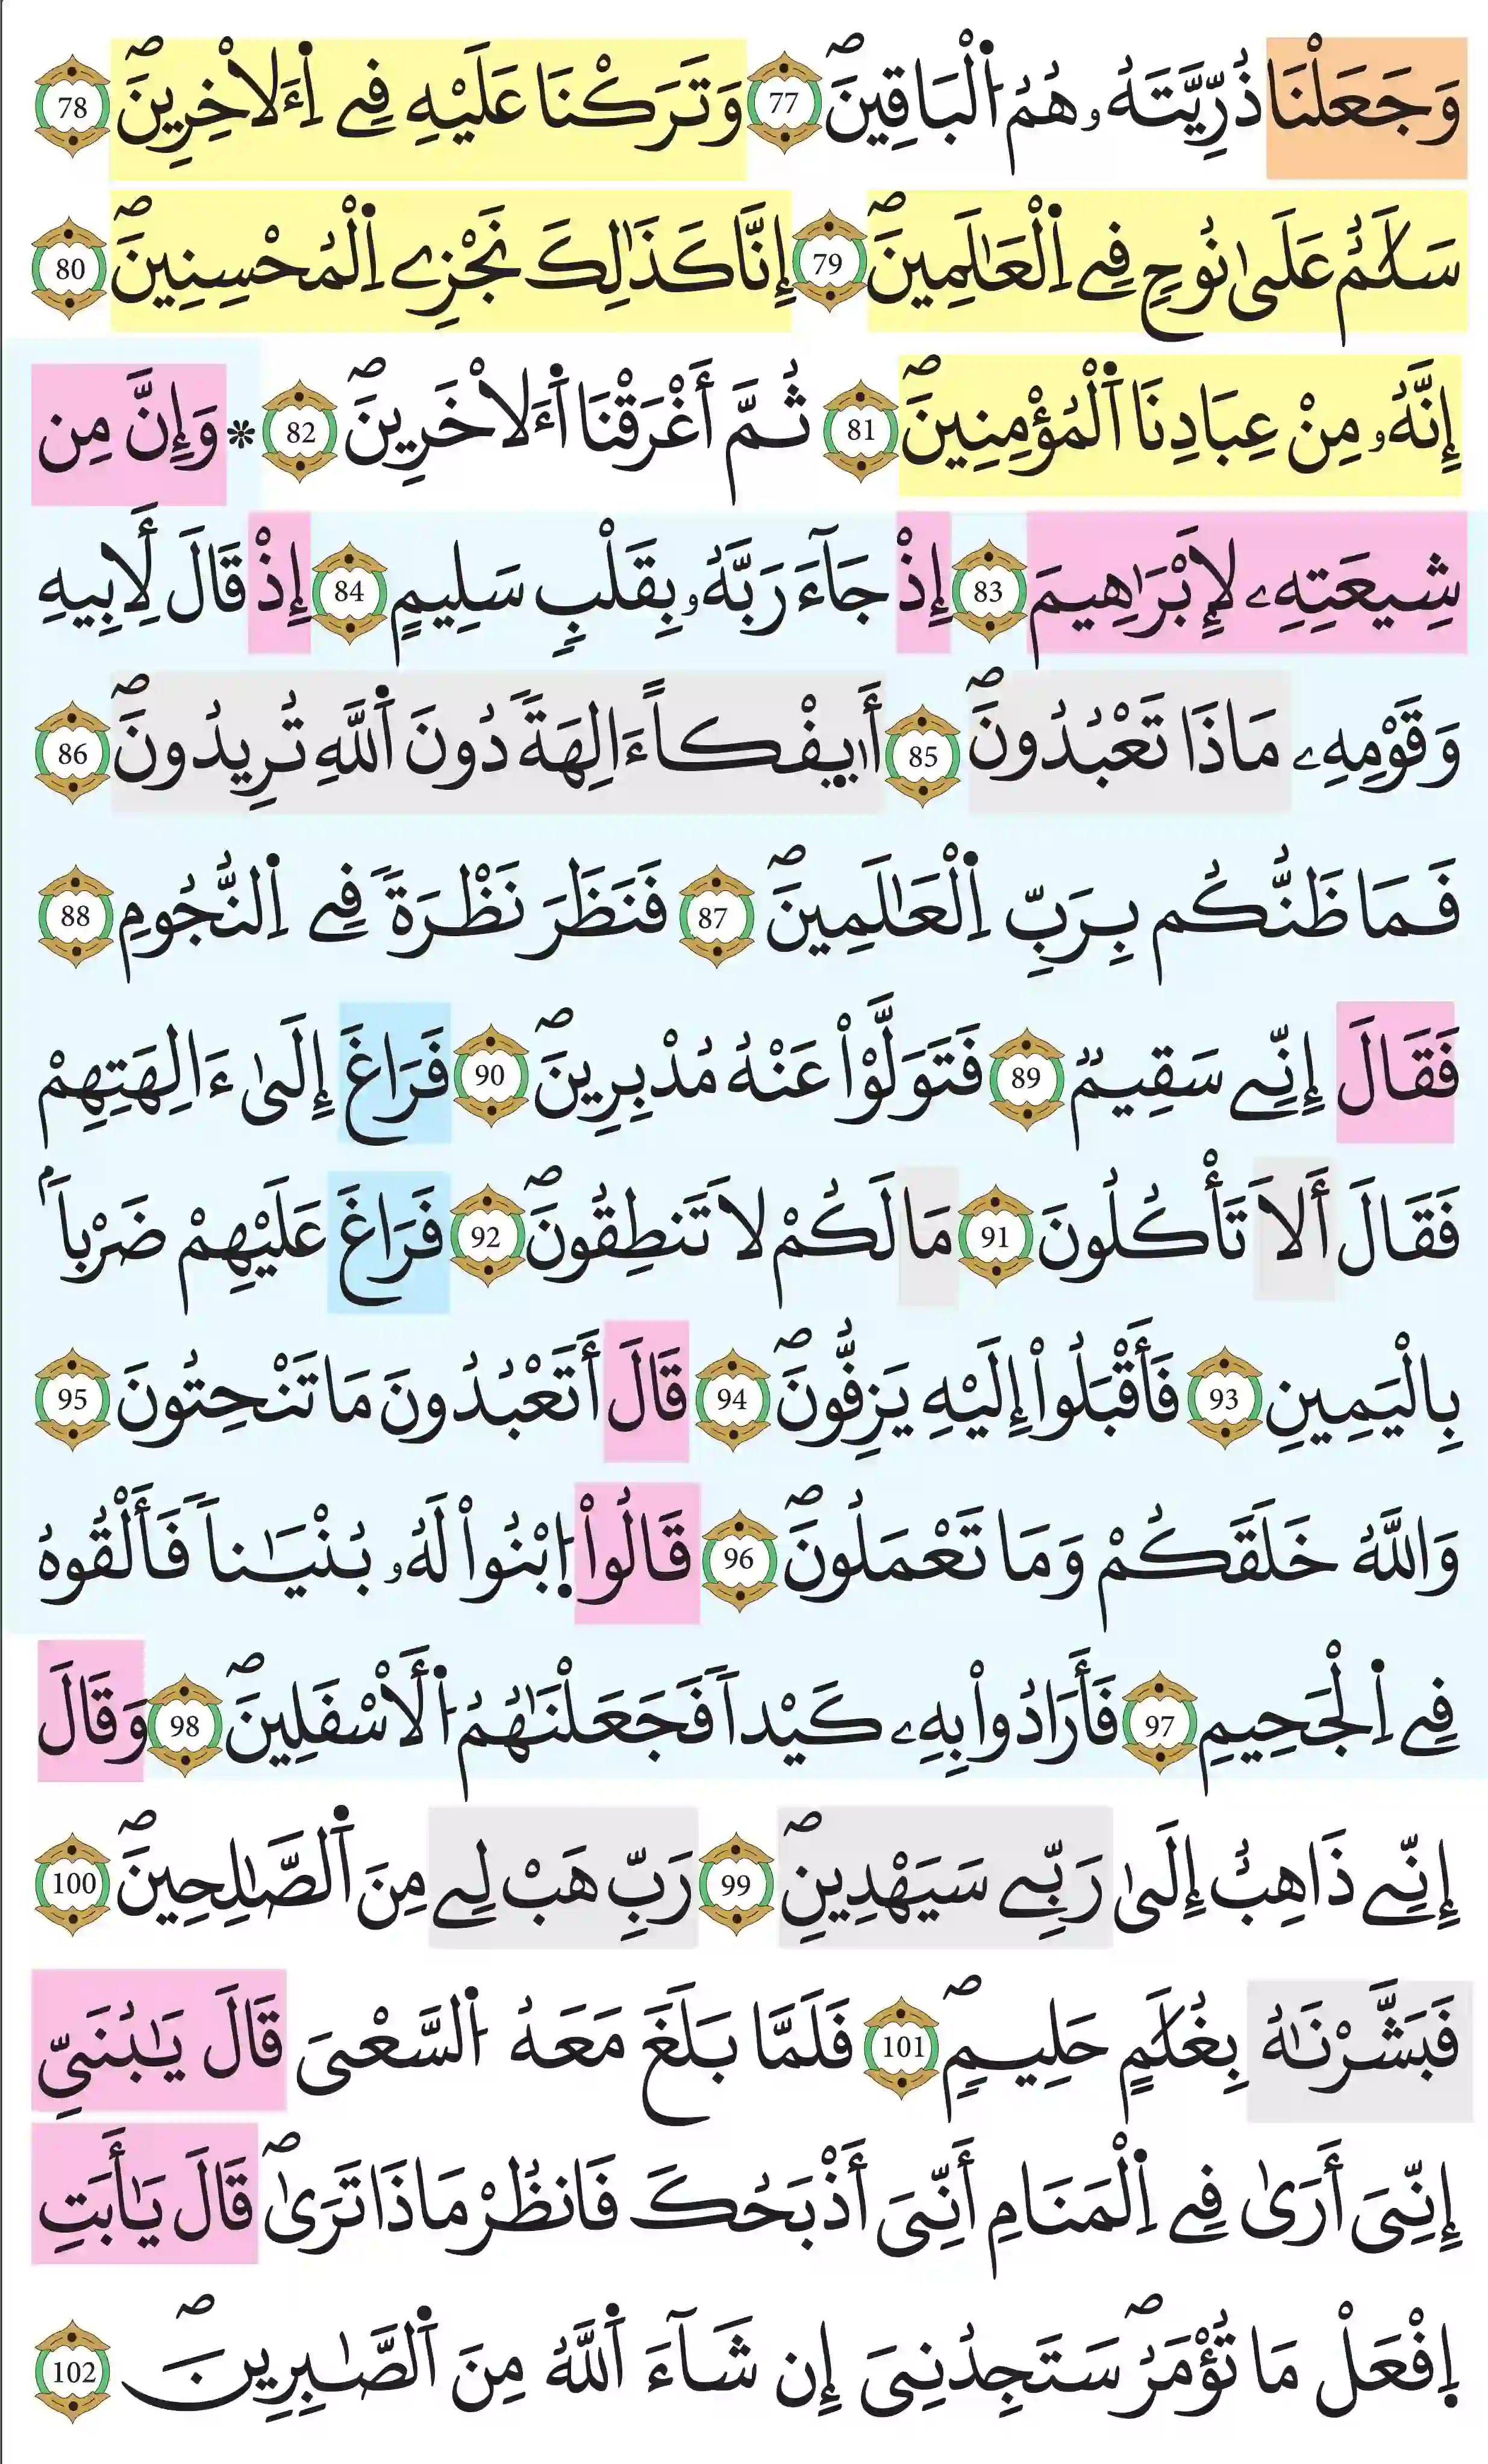 وَجَعَلْنَا ذُرِّيَّتَهُۥ هُمُ اُ۬لْبَاقِينَۖ 77 وَتَرَكْنَا عَلَيْهِ فِے اِ۬ءَلَاخِرِينَۖ 78
سَلَٰمٌ عَلَىٰ نُوحٖ فِے اِ۬لْعَٰلَمِينَۖ 79 إِنَّا كَذَٰلِكَ نَجْزِے اِ۬لْمُحْسِنِينَۖ 80
إِنَّهُۥ مِنْ عِبَادِنَا اَ۬لْمُؤْمِنِينَۖ 81 ثُمَّ أَغْرَقْنَا اَ۬ءَلَاخَرِينَۖ 82 * وَإِنَّ مِن
شِيعَتِهِۦ لَإِبْرَٰهِيمَ 83 إِذْ جَآءَ رَبَّهُۥ بِقَلْبٖ سَلِيمٍ 84 إِذْ قَالَ لِأَبِيهِ
وَقَوْمِهِۦ مَاذَا تَعْبُدُونَۖ 85 أَئِفْكاً ءَالِهَةٗ دُونَ اَ۬للَّهِ تُرِيدُونَۖ 86
فَمَا ظَنُّكُم بِرَبِّ اِ۬لْعَٰلَمِينَۖ 87 فَنَظَرَ نَظْرَةٗ فِے اِ۬لنُّجُومِ 88
فَقَالَ إِنِّے سَقِيمٞ 89 فَتَوَلَّوْاْ عَنْهُ مُدْبِرِينَۖ 90 فَرَاغَ إِلَىٰ ءَالِهَتِهِمْ
فَقَالَ أَلَا تَأْكُلُونَ 91 مَا لَكُمْ لَا تَنطِقُونَۖ 92 فَرَاغَ عَلَيْهِمْ ضَرْباَۢ
بِالْيَمِينِ 93 فَأَقْبَلُواْ إِلَيْهِ يَزِفُّونَۖ 94 قَالَ أَتَعْبُدُونَ مَا تَنْحِتُونَ 95
وَاللَّهُ خَلَقَكُمْ وَمَا تَعْمَلُونَۖ 96 قَالُواْ اُ۪بْنُواْ لَهُۥ بُنْيَٰناٗ فَأَلْقُوهُ
فِے اِ۬لْجَحِيمِ 97 فَأَرَادُواْ بِهِۦ كَيْداٗ فَجَعَلْنَٰهُمُ اُ۬لْأَسْفَلِينَۖ 98 وَقَالَ
إِنِّے ذَاهِبٌ إِلَىٰ رَبِّے سَيَهْدِينِۖ 99 رَبِّ هَبْ لِے مِنَ اَ۬لصَّٰلِحِينَۖ 100
فَبَشَّرْنَٰهُ بِغُلَٰمٍ حَلِيمٖۖ 101 فَلَمَّا بَلَغَ مَعَهُ اُ۬لسَّعْىَ قَالَ يَٰبُنَىِّ
إِنِّىَ أَرَىٰ فِے اِ۬لْمَنَامِ أَنِّىَ أَذْبَحُكَ فَانظُرْ مَاذَا تَرَىٰۖ قَالَ يَٰأَبَتِ
اِ۪فْعَلْ مَا تُؤْمَرُۖ سَتَجِدُنِىَ إِن شَآءَ اَ۬للَّهُ مِنَ اَ۬لصَّٰبِرِينَۖ 102